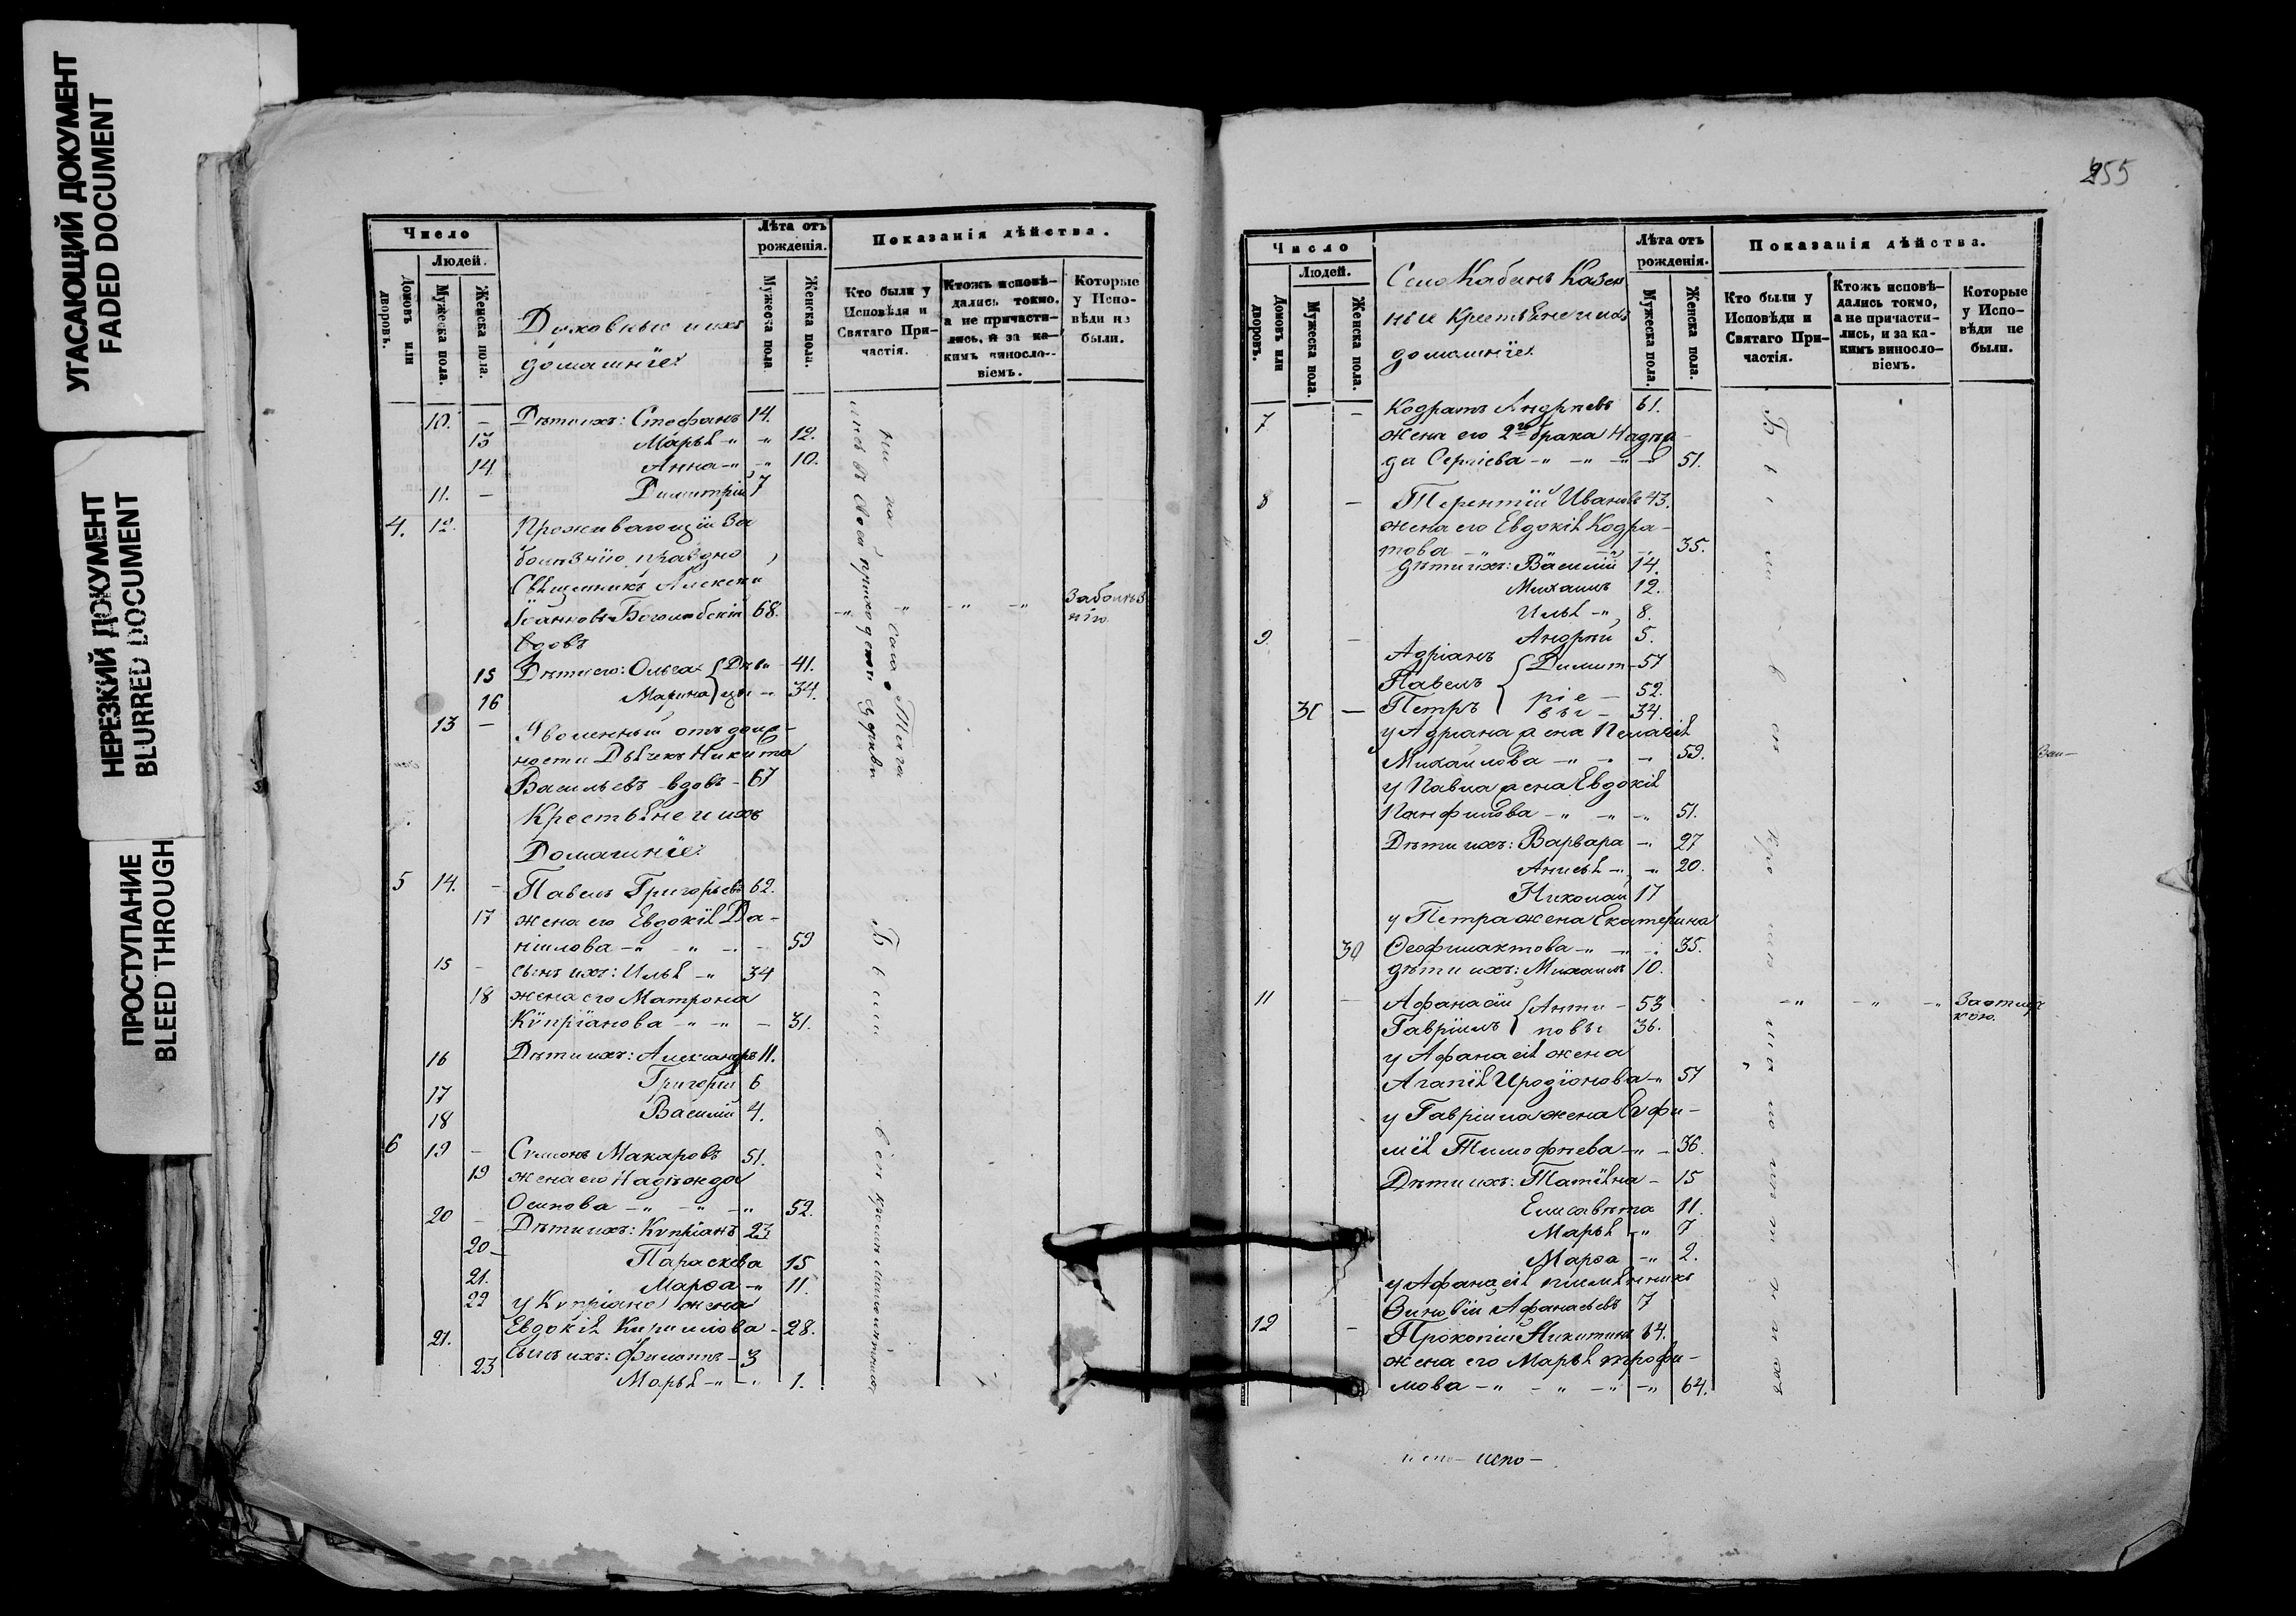 УГАСАЮЩИЙ ДОКУМЕНТ
FADED DOCUMENT
НЕРЕЗКИЙ ДОКУМЕНТ
BLURRED DOCUMENT
ПРОСТУПАНИЕ
BLEED THROUGH
Число
Людей.
Домовъ или дворовъ.
Мужеска пола.
Женска пола.
Духовные и ихъ
домашніе:
Лѣта отъ рожденія.
Мужеска пола
Женска пола.
Показанія дѣйства.
Кто были у Исповѣди и Святаго Причастія.
Ктожъ исповѣдались токмо, а не причастились, и за какимъ винословіемъ.
Которые у Исповѣди не были.
10. – Дѣти ихъ: Стефанъ 14.
13 Марья -„ „ 12.
14. Анна -„ -„ 10.
11. – Димитрій 7
4. 12. Проживающій за
болѣзнію праздно
Священникъ Алексѣй
Іоанновъ Боголюбскій 68. -„ „ -„ -„ За болѣзнію
вдовъ
15 Дѣти его: Ольга { Дѣви- 41.
16 Марина } цы -„ 34.
13 – Уволенный отъ долж-
ности Дьячекъ Никита
Васильевъ вдовъ - 67
Крестьяне и ихъ
Домашніе:
5 14. – Павелъ Григорьевъ 62.
17 жена его Евдокія Да-
ніилова -„ „ - - 59
15 – сынъ ихъ: Илья -„ 34
18 жена его Матрона
Купріанова -„ -„ – 31.
16 Дѣти ихъ: Александръ 11.
17 Григорій 6
18 Василій 4.
6 19 – Симеонъ Макаровъ 51.
19 жена его Надежда
Осипова -„ -„ -„ 52.
20 – Дѣти ихъ: Купріанъ 23
20 – Параскева 15
21. Марѳа -„ 11.
22 у Купріана жена
Евдокія Кирилова - 28.
21. сынъ ихъ: Филиппъ - 3
23 Марья -„ -„ 1.
255
Число
Людей.
Домовъ или дворовъ.
Мужеска пола.
Женска пола.
Село Кабанъ Казен
ные Крестьяне и ихъ
домашніе:
Лѣта отъ рожденія.
Мужеска пола.
Женска пола.
Показанія дѣйства.
Кто были у Исповѣди и Святаго Причастія.
Ктожъ исповѣдались токмо, а не причастились, и за какимъ винословіемъ.
Которые у Исповѣди не были.
7 – Кодратъ Андреевъ 61.
жена его 2го брака Надеж
да Сергіева -„ -„ -„ -„ 51.
8 – Терентій Ивановъ 43.
жена его Евдокія Кодра-
това -„ -„ -„ 35.
дѣти ихъ: Василій 14.
Михаилъ 12.
Илья -„ 8.
9. – Андрей 5.
Адріанъ { Димит- 57
Павелъ { ріе – 52.
31 – Петръ { вы – 34.
у Адріана жена Пелагія
Михайлова -„ -„ -„ 59.
у Павла жена Евдокія
Панфилова -„ -„ -„ 51.
Дѣти ихъ: Варвара -„ 27
Анисья -„ -„ 20.
Николай 17
у Петра жена Екатерина
30 Ѳеофилактова -„ -„ -„ 35.
дѣти ихъ: Михаилъ 10.
11 – Афанасій { Анти- 53 -„ -„ -„ За отлуч
Гавріилъ { повы 36. кою.
у Афанасія жена
Агапія Иродіонова -„ 57
у Гавріила жена Евфи-
мія Тимофѣева -„ - 36.
Дѣти ихъ: Татіяна - 15
Елисавета 11.
Марья -„ 7
Марѳа -„ 2.
у Афанасія племянникъ
Зиновій Афанасьевъ 7
12 – Прокопій Никитинъ 64.
жена его Марья Трофи-
мова -„ -„ -„ -„ 64.
испо-